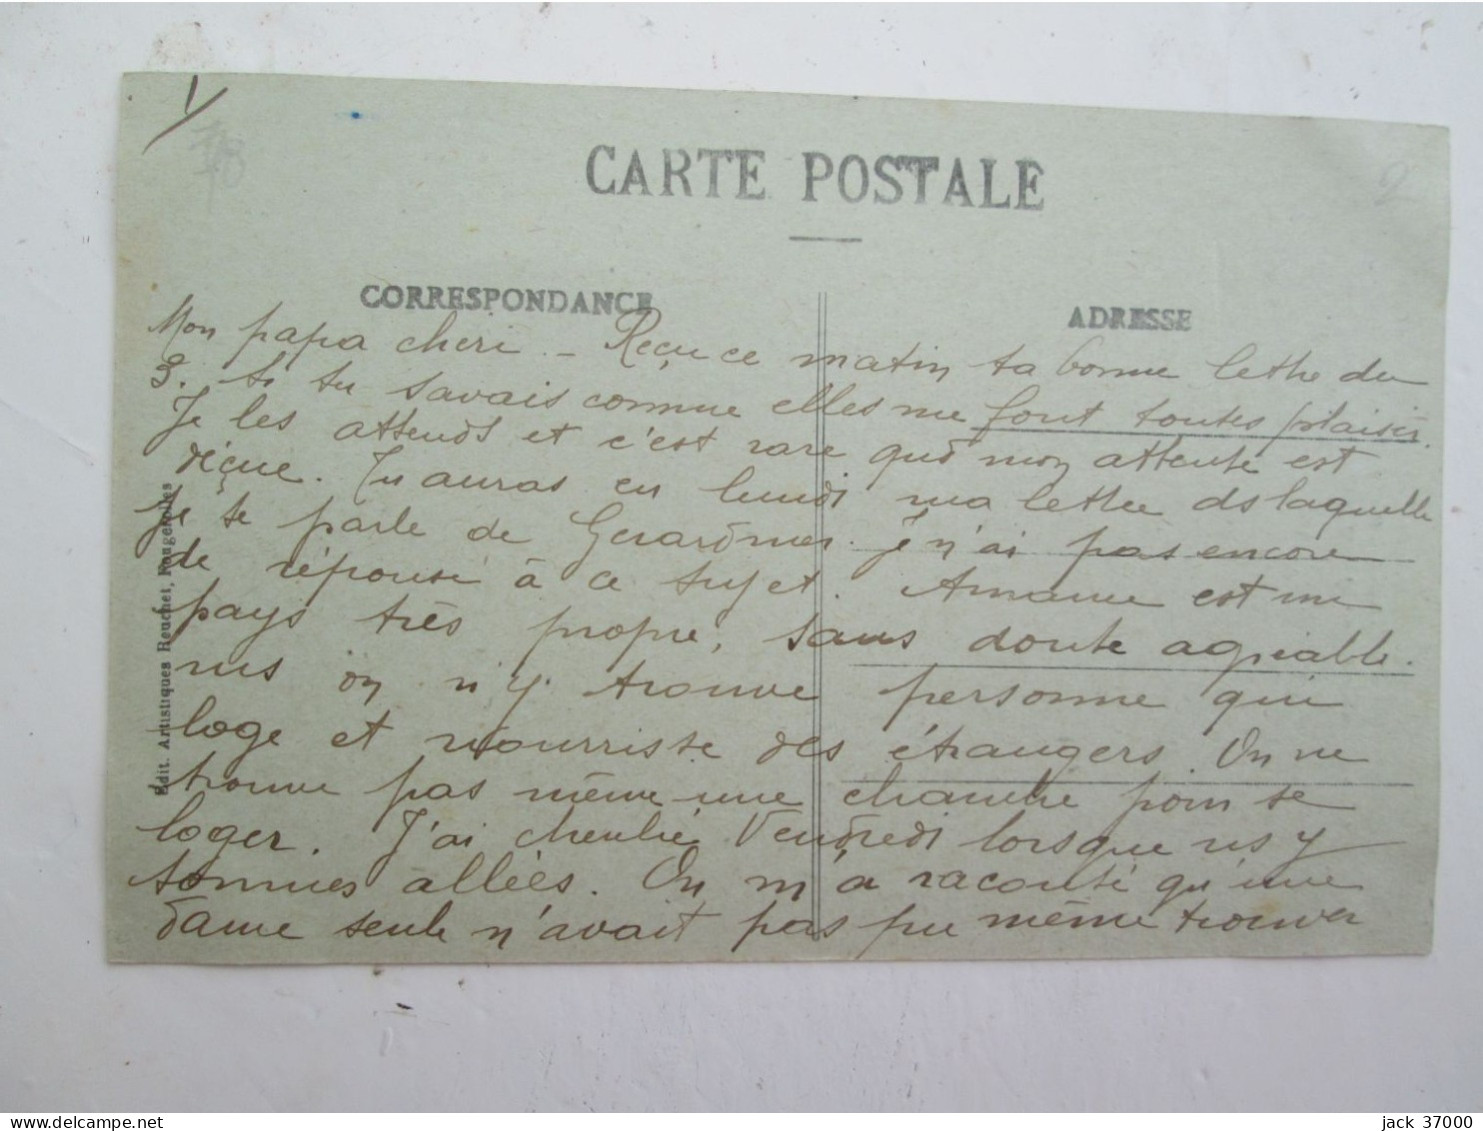 1/
CARTE POSTALE
2
CORRESPONDANCE
ADRESSE
Mon papa cheri – Reçu ce matin ta bonne lettre du
3. Si tu savais comme elles me font toutes plaisir.
Je les attends et c'est rare que mon attente est
déçue. Tu auras eu lundi ma lettre ds laquelle
je te parle de Gerardmer. Je n'ai pas encore
de réponse à ce sujet. Amance est un
pays très propre, sans doute agréable.
ms on n'y trouve personne qui
loge et nourrisse des étrangers. On ne
trouve pas même une chambre pour se
loger. J'ai cherché Vendredi lorsque ns y
sommes allées. On m'a raconté qu'une
dame seule n'avait pas pu même trouver
Edit. Artistiques Reuchet, Fougerolles
jack 37000